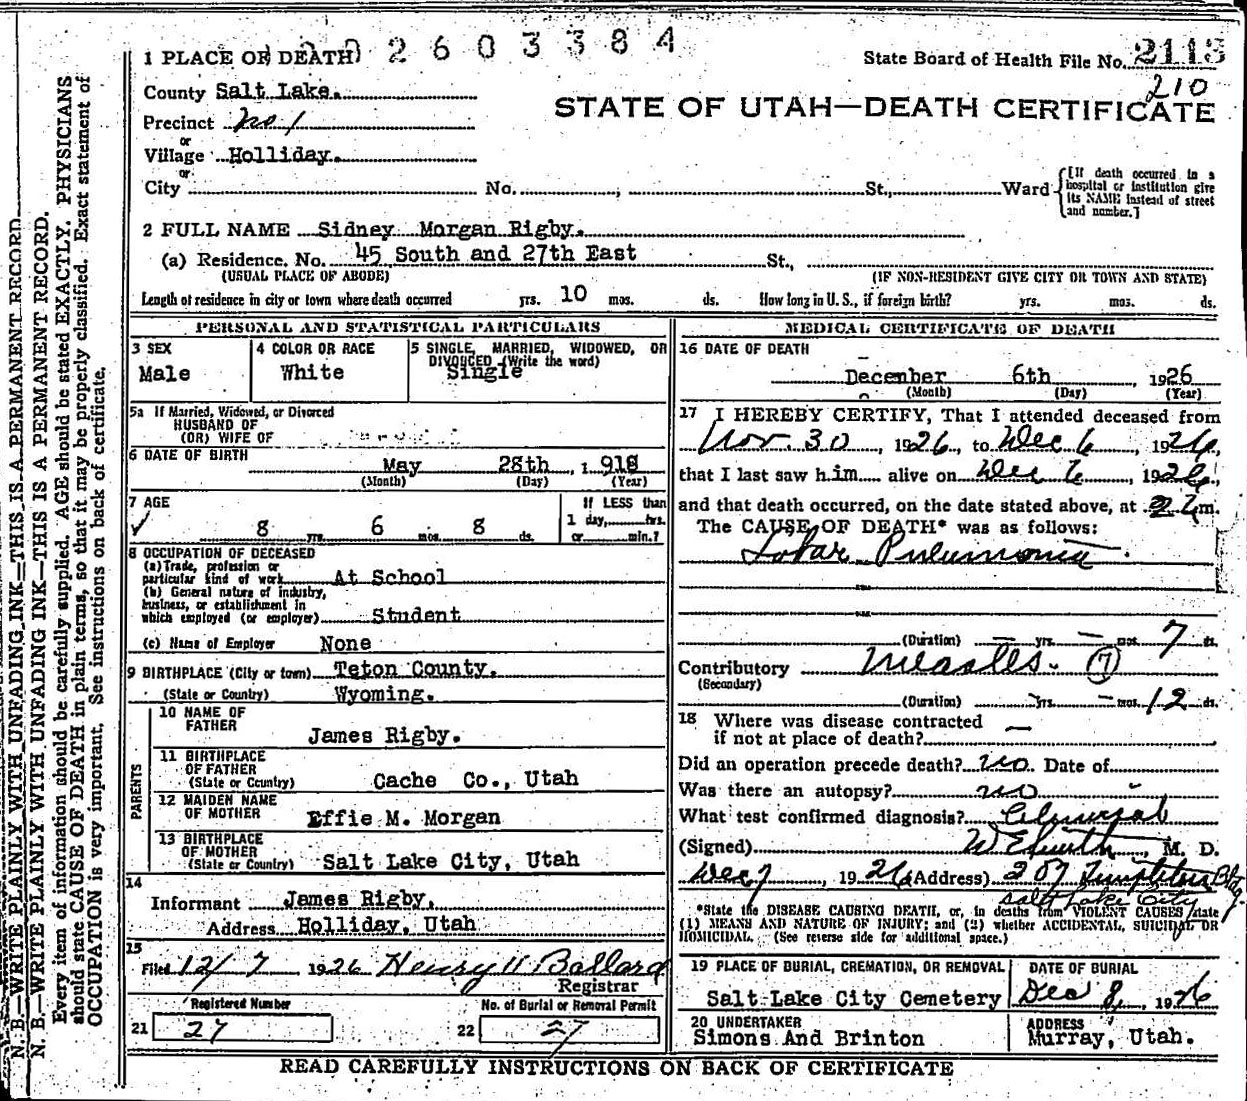 N. B.—WRITE PLAINLY WITH UNFADING INK—THIS IS A PERMANENT RECORD
N. B.—WRITE PLAINLY WITH UNFADING INK—THIS IS A PERMANENT RECORD.
Every item of information should be carefully supplied. AGE should be stated EXACTLY. PHYSICIANS
should state CAUSE OF DEATH in plain terms, so that it may be properly classified. Exact statement of
OCCUPATION is very important. See instructions on back of certificate.
2603384
1 PLACE OF DEATH
State Board of Health File No. 2113
210
County Salt Lake.
STATE OF UTAH—DEATH CERTIFICATE
Precinct No 1
or
Village Holliday.
or
City No. ; St., Ward
[If death occurred in a hospital or institution give its NAME instead of street and number.]
2 FULL NAME Sidney Morgan Rigby.
(a) Residence. No. 45 South and 27th East St.,
(USUAL PLACE OF ABODE) (IF NON-RESIDENT GIVE CITY OR TOWN AND STATE)
Length of residence in city or town where death occurred yrs. 10 mos. ds. How long in U. S., if foreign birth? yrs. mos. ds.
PERSONAL AND STATISTICAL PARTICULARS
3 SEX
Male
4 COLOR OR RACE
White
5 SINGLE, MARRIED, WIDOWED, OR
DIVORCED (Write the word)
Single
5a If Married, Widowed, or Divorced
HUSBAND OF
(OR) WIFE OF
6 DATE OF BIRTH
May 28th, 1918
(Month) (Day) (Year)
7 AGE
8 yrs. 6 mos. 8 ds.
If LESS than
1 day, hrs.
or min.?
8 OCCUPATION OF DECEASED
(a) Trade, profession or
particular kind of work At School
(b) General nature of industry,
business, or establishment in
which employed (or employer) Student
(c) Name of Employer None
9 BIRTHPLACE (City or town) Teton County.
(State or Country) Wyoming.
PARENTS
10 NAME OF
FATHER James Rigby.
11 BIRTHPLACE
OF FATHER
(State or Country) Cache Co., Utah
12 MAIDEN NAME
OF MOTHER Effie M. Morgan
13 BIRTHPLACE
OF MOTHER
(State or Country) Salt Lake City, Utah
14
Informant James Rigby.
Address Holliday, Utah
15
Filed 12/7 1926 Henry H Ballard
Registrar
Registered Number
21 27
No. of Burial or Removal Permit
22 27
MEDICAL CERTIFICATE OF DEATH
16 DATE OF DEATH
December 6th, 1926
(Month) (Day) (Year)
17 I HEREBY CERTIFY, That I attended deceased from
Nov. 30, 1926, to Dec 6, 1926,
that I last saw him alive on Dec 6, 1926,
and that death occurred, on the date stated above, at m.
The CAUSE OF DEATH* was as follows:
Lobar Pneumonia.
(Duration) — yrs. — mos. 7 ds.
Contributory Measles. (7)
(Secondary)
(Duration) — yrs. — mos. 12 ds.
18 Where was disease contracted
if not at place of death? —
Did an operation precede death? no Date of
Was there an autopsy? no
What test confirmed diagnosis? Clinical
(Signed) M. D.
Dec 7, 1926 (Address) 207 Templeton Bldg.
Salt Lake City
*State the DISEASE CAUSING DEATH, or, in deaths from VIOLENT CAUSES state
(1) MEANS AND NATURE OF INJURY; and (2) whether ACCIDENTAL, SUICIDAL OR
HOMICIDAL. (See reverse side for additional space.)
19 PLACE OF BURIAL, CREMATION, OR REMOVAL
Salt Lake City Cemetery
DATE OF BURIAL
Dec 8, 1926
20 UNDERTAKER
Simons And Brinton
ADDRESS
Murray, Utah.
READ CAREFULLY INSTRUCTIONS ON BACK OF CERTIFICATE